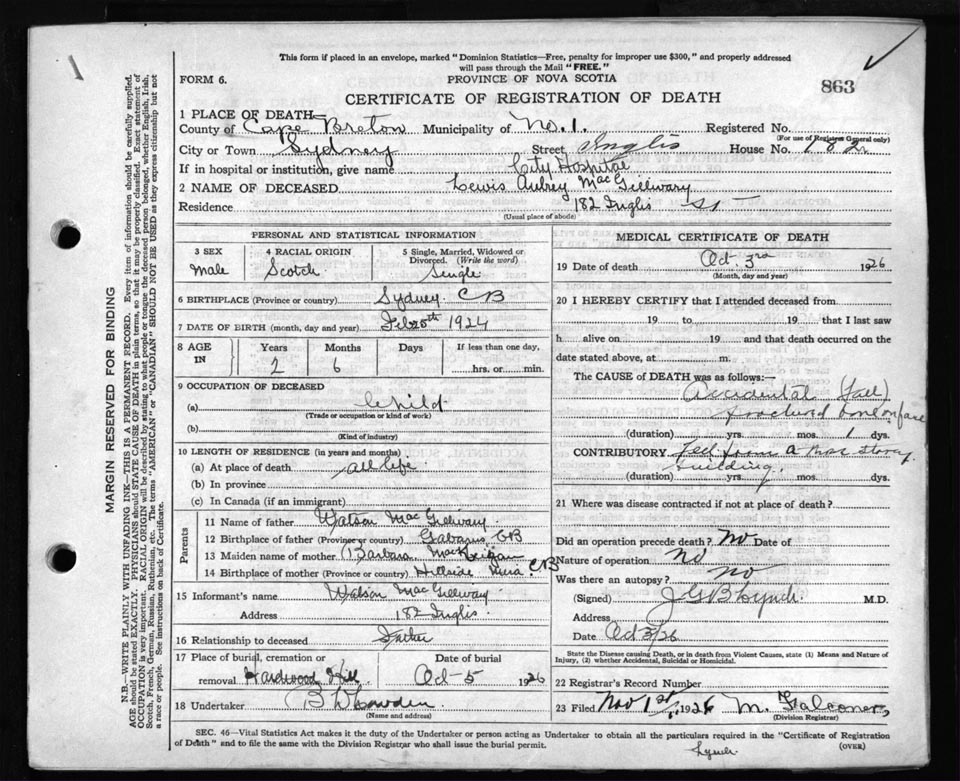 This form if placed in an envelope, marked "Dominion Statistics—Free, penalty for improper use $300," and properly addressed
will pass through the Mail "FREE."
FORM 6.
PROVINCE OF NOVA SCOTIA
863
CERTIFICATE OF REGISTRATION OF DEATH
1 PLACE OF DEATH
County of Cape Breton Municipality of No. 1. Registered No.
(For use of Registrar General only)
City or Town Sydney Street Inglis House No. 182
If in hospital or institution, give name City Hospital
2 NAME OF DECEASED Lewis Aubrey MacGillivary
Residence 182 Inglis St
(Usual place of abode)
PERSONAL AND STATISTICAL INFORMATION
3 SEX 4 RACIAL ORIGIN 5 Single, Married, Widowed or
Divorced. (Write the word)
Male Scotch Single
6 BIRTHPLACE (Province or country) Sydney CB
7 DATE OF BIRTH (month, day and year) 1924
8 AGE IN Years Months Days If less than one day,
2 6 hrs. or min.
9 OCCUPATION OF DECEASED
(a) Child
(Trade or occupation or kind of work)
(b)
(Kind of industry)
10 LENGTH OF RESIDENCE (in years and months)
(a) At place of death all life
(b) In province
(c) In Canada (if an immigrant)
Parents
11 Name of father Watson MacGillivary
12 Birthplace of father (Province or country) Gabarus CB
13 Maiden name of mother Barbara MacKeigan
14 Birthplace of mother (Province or country) Hillside Mira CB
15 Informant's name Watson MacGillivary
Address 182 Inglis
16 Relationship to deceased Father
17 Place of burial, cremation or Date of burial
removal Hardwood Hill Oct 5 1926
18 Undertaker
(Name and address)
MEDICAL CERTIFICATE OF DEATH
19 Date of death Oct. 3rd 1926
(Month, day and year)
20 I HEREBY CERTIFY that I attended deceased from
19 to 19 that I last saw
h alive on 19 and that death occurred on the
date stated above, at m.
The CAUSE OF DEATH was as follows:—
Accidental (Fall)
fractured bone on face
(duration) yrs. mos. 1 dys.
CONTRIBUTORY Fell from a story
building
(duration) yrs. mos. dys.
21 Where was disease contracted if not at place of death?
Did an operation precede death? No Date of
Nature of operation No
Was there an autopsy? no
(Signed) Lynch M.D.
Address
Date Oct 3/26
State the Disease causing Death, or in death from Violent Causes, state (1) Means and Nature of
Injury, (2) whether Accidental, Suicidal or Homicidal.
22 Registrar's Record Number
23 Filed Nov 1st 1926 M. Falconer
(Division Registrar)
SEC. 46—Vital Statistics Act makes it the duty of the Undertaker or person acting as Undertaker to obtain all the particulars required in the "Certificate of Registration
of Death" and to file the same with the Division Registrar who shall issue the burial permit.
(OVER)
Lynch
MARGIN RESERVED FOR BINDING
N.B.—WRITE PLAINLY WITH UNFADING INK—THIS IS A PERMANENT RECORD. Every item of information should be carefully supplied.
AGE should be stated EXACTLY. PHYSICIANS should STATE CAUSE OF DEATH in plain terms, so that it may be properly classified. Exact statement of
OCCUPATION is very important. RACIAL ORIGIN will be described by stating to what people or tongue the deceased person belonged, whether English, Irish,
Scotch, French, German, Russian, Ruthenian, etc. The terms "AMERICAN" or "CANADIAN" SHOULD NOT BE USED as they express citizenship but not
a race or people. See instructions on back of Certificate.